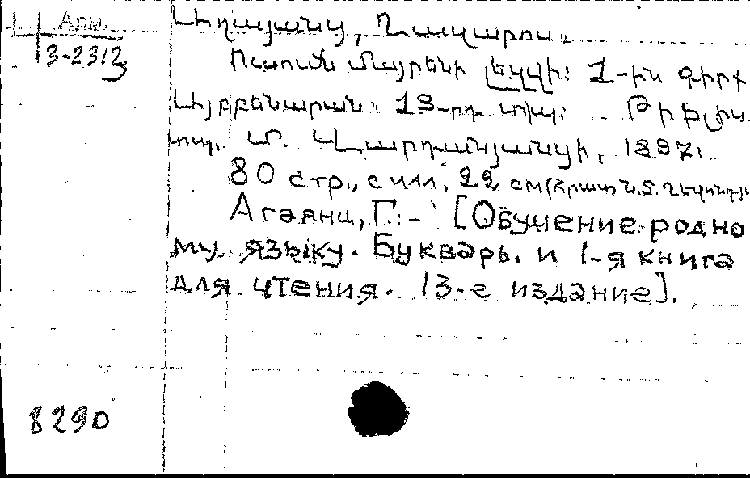 Арм.
3-2312
Աղայանց, Ղազարոս.
Ուսումն մայրենի լեզվի: 1-ին գիրք
Այբբենարան: 13-րդ տպ: Թիֆլիս
տպ. Մ. Վարդանյանցի, 1897.
80 стр., с илл. 22 см (Հրատ. Ն. Տ. Ղեվոնդյ
Агаянц, Г. - [Обучение родно
му языку. Букварь. и 1-я книга
для чтения. 13-е издание].
8290